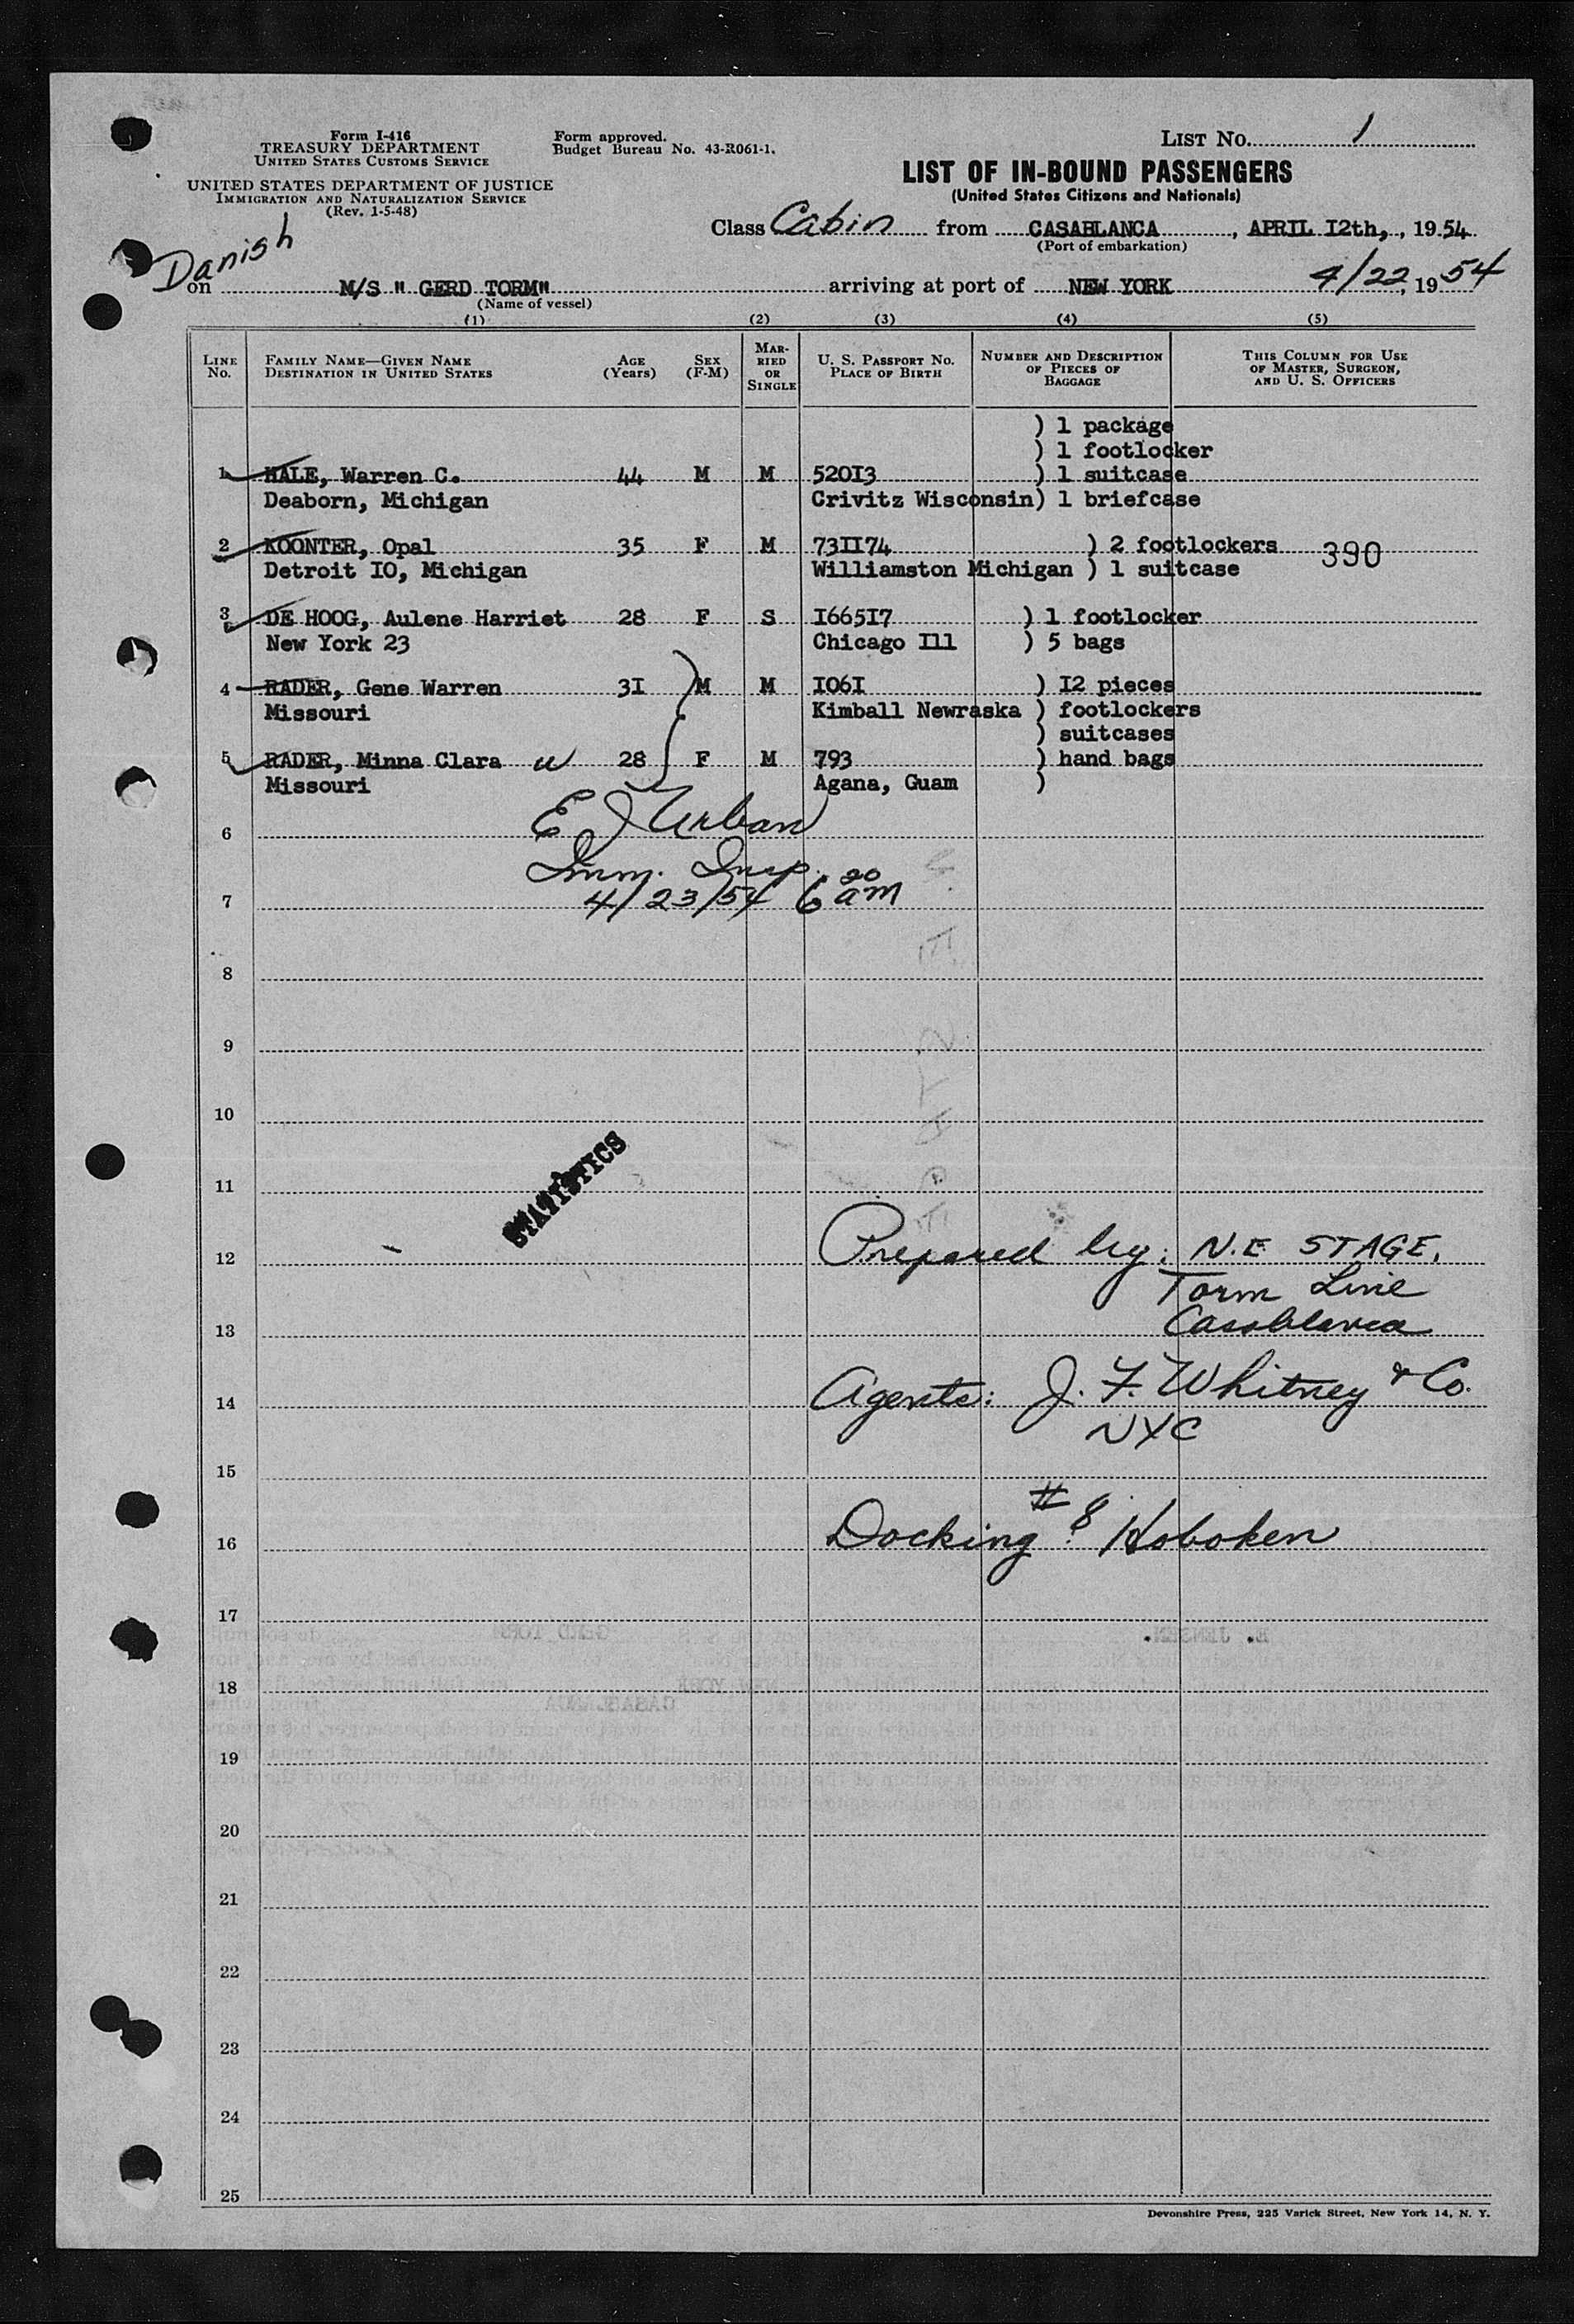 Form I-416
TREASURY DEPARTMENT
UNITED STATES CUSTOMS SERVICE
UNITED STATES DEPARTMENT OF JUSTICE
IMMIGRATION AND NATURALIZATION SERVICE
(Rev. 1-5-48)
Form approved.
Budget Bureau No. 43-R061-1.
LIST No. 1
LIST OF IN-BOUND PASSENGERS
(United States Citizens and Nationals)
Class Cabin from CASABLANCA, APRIL I2th, , 1954
(Port of embarkation)
Danish
on M/S " GERD TORM" arriving at port of NEW YORK 4/22, 1954
(Name of vessel)
(1) (2) (3) (4) (5)
LINE No. FAMILY NAME—GIVEN NAME DESTINATION IN UNITED STATES AGE (Years) SEX (F-M) MARRIED OR SINGLE U. S. PASSPORT No. PLACE OF BIRTH NUMBER AND DESCRIPTION OF PIECES OF BAGGAGE THIS COLUMN FOR USE OF MASTER, SURGEON, AND U. S. OFFICERS
) 1 package
) 1 footlocker
1 HALE, Warren C. 44 M M 520I3 ) 1 suitcase
Deaborn, Michigan Crivitz Wisconsin) 1 briefcase
2 KOONTER, Opal 35 F M 73II74 ) 2 footlockers 390
Detroit IO, Michigan Williamston Michigan ) 1 suitcase
3 DE HOOG, Aulene Harriet 28 F S I665I7 ) 1 footlocker
New York 23 Chicago Ill ) 5 bags
4 RADER, Gene Warren 3I M M I06I ) I2 pieces
Missouri Kimball Newraska ) footlockers
) suitcases
5 RADER, Minna Clara 28 F M 793 ) hand bags
Missouri Agana, Guam )
E J Urban
6
Imm. Insp.
7 4/23/54 6 20 am
8
9
10
STATISTICS
11
12 Prepared by: N.E. STAGE,
Torm Line
13 Casablanca
14 Agents: J. F. Whitney & Co.
NYC
15
16 Docking #8 Hoboken
17
GERD TORM E. JENSEN.
18 NEW YORK
CASABLANCA
19
20
21
22
23
24
25
Devonshire Press, 225 Varick Street, New York 14, N. Y.